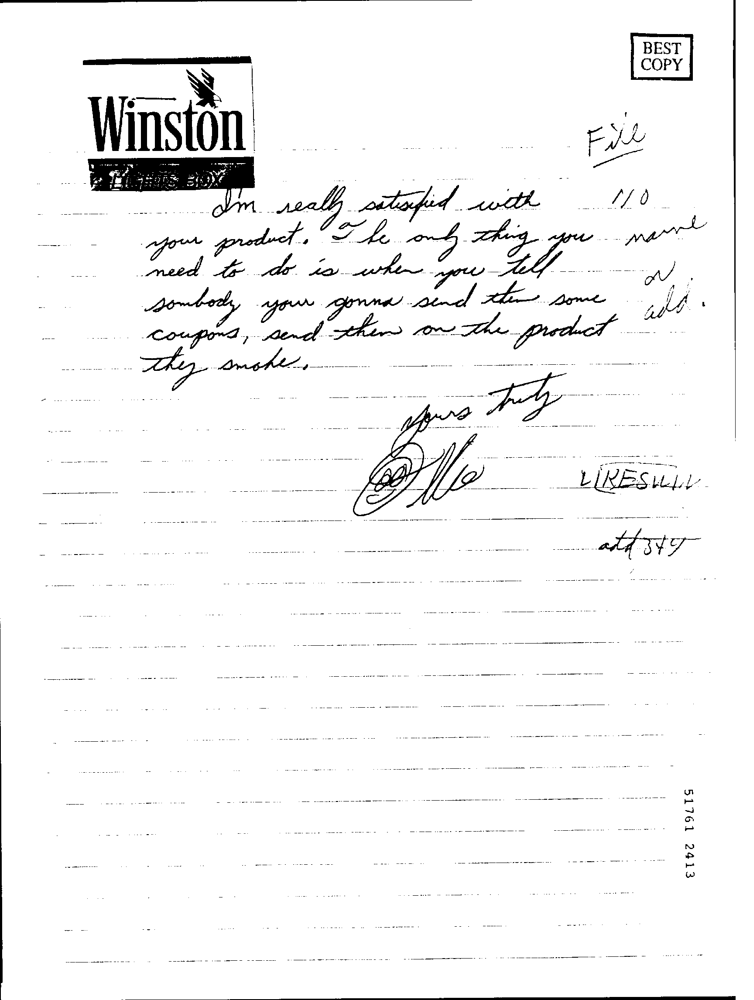 BEST
COPY
Winston
LIGHTS BOX
File
I'm really satisfied with
your product. The only thing you
need to do is when you tell
sombody your gonna send them some
coupons, send them on the product
they smoke.
no
name
or
add.
yours truly
51761 2413